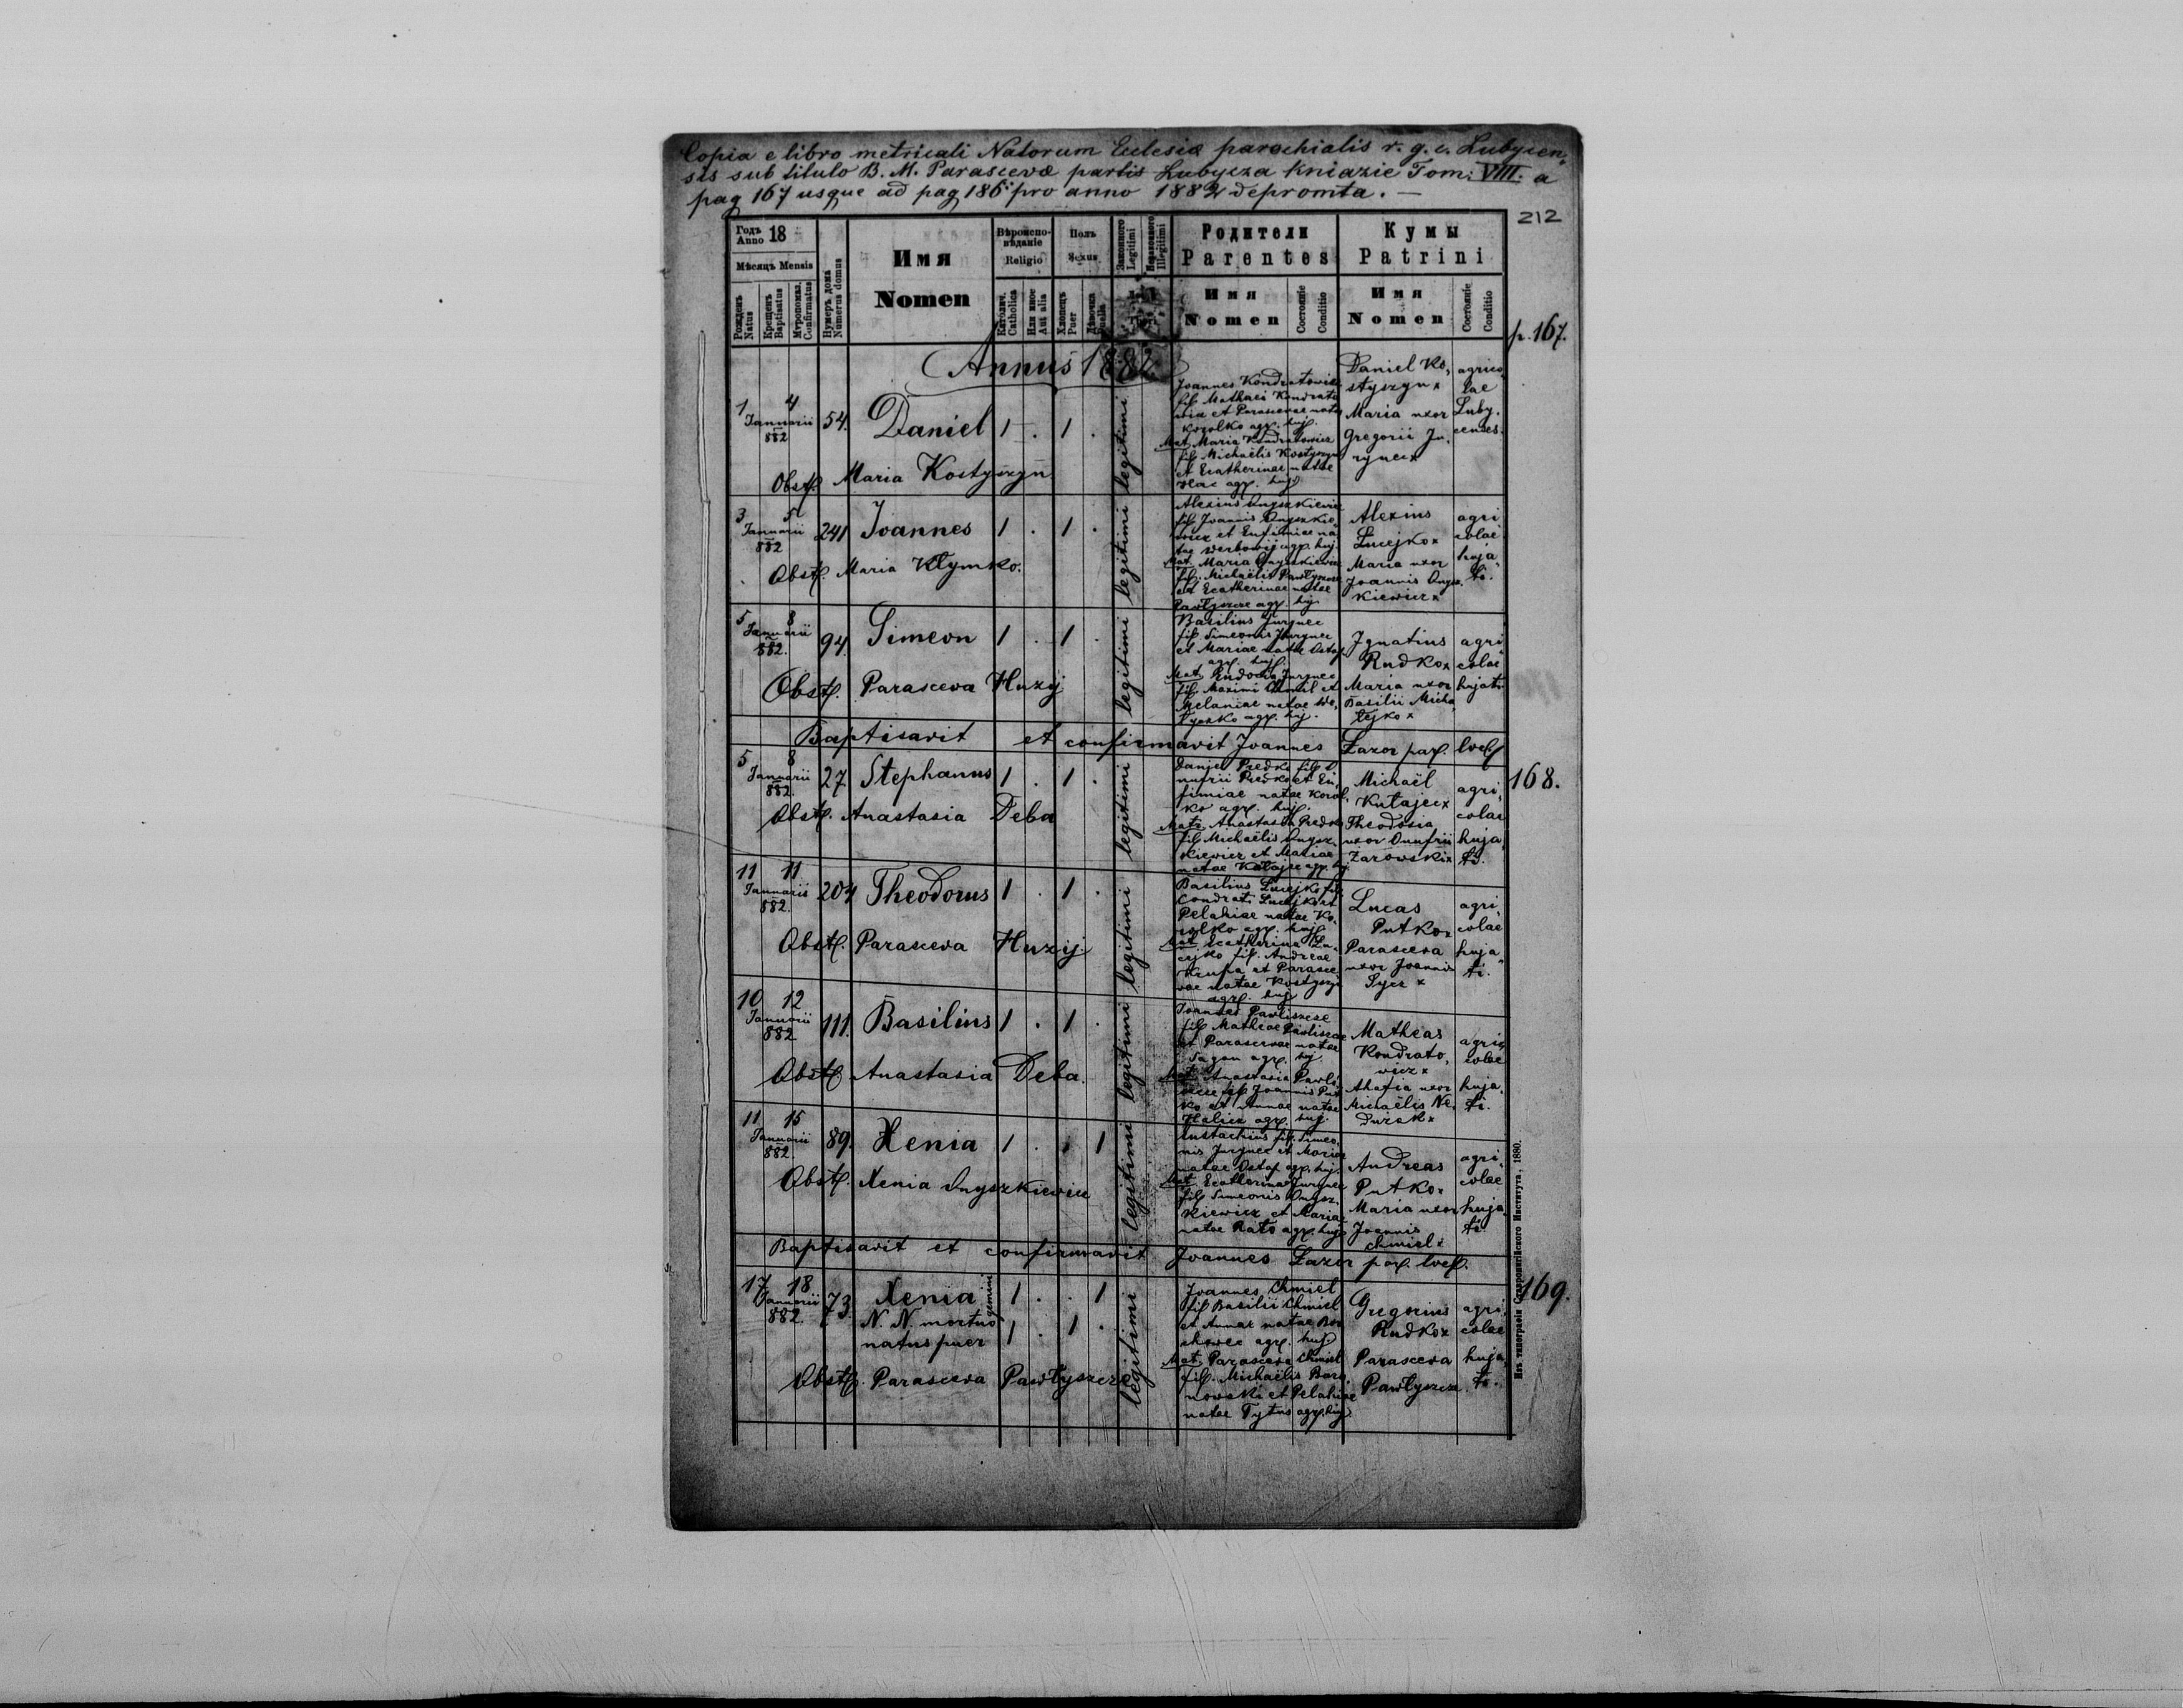 Copia e libro metricali Natorum Eclesiæ parochialis r. g. c. Lubycen„
sis sub titulo B. M. Parascevæ partis Lubycza Kniazie Tom: VIII. a
pag 167 usque ad pag 186 pro anno 1882 depromta. —
212
Годъ
Anno 18
Мѣсяцъ Mensis
Рожденъ
Natus
Крещенъ
Baptisatus
Мѵропомаз.
Confirmatus
Нумеръ дома
Numerus domus
Имя
Nomen
Вѣроиспо-
вѣданіе
Religio
Католич.
Catholica
Или иное
Aut alia
Полъ
Sexus
Хлопецъ
Puer
Дѣвочка
Puella
Законного
Legitimi
Незаконного
Illegitimi
Родители
Parentes
Имя
Nomen
Состояніе
Conditio
Кумы
Patrini
Имя
Nomen
Состояніе
Conditio
p. 167.
Annus 1882
1 4
Januarii
882
54.
Daniel
1 . 1 .
legitimi
Joannes Kondratowicz
fil. Mathaei Kondrato
wicz et Parascevae natae
Kozolko agr. huj.
Mat. Maria Kondratowicz
fil. Michaëlis Kostyszyn
et Ecatherinae natae
agr. huj.
Daniel Ko„
styszyn x
Maria uxor
Gregorii Ju„
rynec x
agrico„
lae
Luby„
censes.
Obst. Maria Kostyszyn
3 5
Januarii
882
241
Joannes
1 . 1 .
legitimi
Alexius Onyszkiewicz
fil. Joannis Onyszkie„
wicz et Eufimiae na„
tae Werbowij agr. huj.
Mat. Maria Onyszkiewicz
fil. Michaëlis Pawłyszcze
et Ecatherinae natae
Pawłyszcze agr. huj.
Alexius
Lucejko x
Maria uxor
Joannis Onysz„
kiewicz x
agri
colae
huja„
ti.
Obst. Maria Klymko.
5 8
Januarii
882.
94.
Simeon
1 . 1 .
legitimi
Basilius Jurynec
fil. Simeonis Jurynec
et Mariae natae Ostap
agr. huj.
Mat. Eudocia Jurynec
fil. Maximi Chmil et
Melaniae natae We„
łyczko agr. huj.
Ignatius
Rudko x
Maria uxor
Basilii Micha„
lejko x
agri„
colae
hujati
Obst. Parasceva Huzij
Baptisavit et confirmavit Joannes Łazor par. loc.
5 8
Januarii
882.
27.
Stephanus
1 . 1 .
legitimi
168.
Daniel Predko fil. O„
nufrii Predko et Eu„
fimiae natae Kozol„
ko agr. huj.
Mat. Anastasia Predko
fil. Michaëlis Onysz„
kiewicz et Mariae
natae Kułajec agr. huj.
Michaël
Kułajec x
Theodosia
uxor Onufrii
Żarowski x
agri„
colae
huja„
ti.
Obst. Anastasia Deba
11 11
Januarii
882.
204
Theodorus
1 . 1 .
legitimi
Basilius Lucejko fil.
Condrati Lucejko et
Pelahiae natae Ko„
zolko agr. huj.
Mat. Ecatherina Lu„
cejko fil. Andreae
Krupa et Parasce„
vae natae Kostyszyn
agr. huj.
Lucas
Putko x
Parasceva
uxor Joannis
Sycz x
agri„
colae
huja„
ti.
Obst. Parasceva Huzij
10 12
Januarii
882
111.
Basilius
1 . 1 .
legitimi
Joannes Pawliszcze
fil. Matheae Pawliszcze
et Parascevae natae
Sagan agr. huj.
Mat. Anastasia Pawli„
szcze fil. Joannis Put„
ko et Annae natae
Halicz agr. huj.
Matheas
Kondrato„
wicz x
Ahafia uxor
Michaëlis Ne„
durak x
agri„
colae
huja„
ti.
Obst. Anastasia Deba.
11 15
Januarii
882.
89.
Xenia
1 . . 1
legitimi
Eustachius fil. Simeo„
nis Jurynec et Mariae
natae Ostap agr. huj.
Mat. Ecatherina Jurynec
fil. Simeonis Onysz„
kiewicz et Mariae
natae Rato agr. huj.
Andreas
Putko x
Maria uxor
Joannis
Chmiel x
agri„
colae
huja„
ti.
Obst. Xenia Onyszkiewicz
Baptisavit et confirmavit Joannes Łazor par. loc.
17 18
Januarii
882.
73.
Xenia
gemini
N. N. mortuo
natus puer
1 . . 1
1 . 1 .
legitimi
169.
Joannes Chmiel
fil. Basilii Chmiel
et Annae natae Bor
agr. huj.
Mat. Parasceva Chmiel
fil. Michaëlis Bara„
nowski et Pelahiae
natae Tytus agr. huj.
Gregorius
Rudko x
Parasceva
Pawłyszcze
agri„
colae
huja„
ti.
Obst. Parasceva Pawłyszcze
Изъ типографіи Ставропигійского Института, 1880.